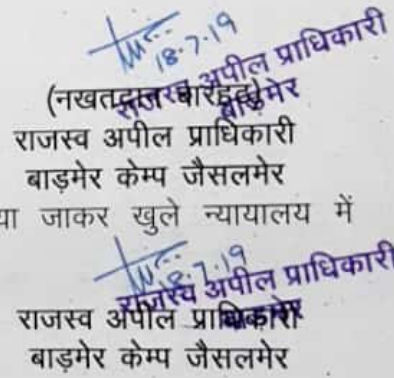 18.7.19
राजस्व अपील प्राधिकारी
बाड़मेर
(नखतदान बारहठ)
राजस्व अपील प्राधिकारी
बाड़मेर केम्प जैसलमेर
या जाकर खुले न्यायालय में
18.7.19
राजस्व अपील प्राधिकारी
बाड़मेर
राजस्व अपील प्राधिकारी
बाड़मेर केम्प जैसलमेर